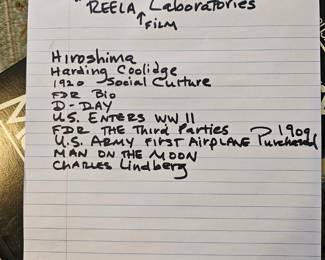 REELA Laboratories
FILM
Hiroshima
Harding Coolidge
1920 Social Culture
FDR Bio
D-DAY
U.S. ENTERS WW II
FDR THE Third Parties
U.S. ARMY FIRST AIRPLANE Purchased 1909
MAN ON THE MOON
CHARLES Lindberg